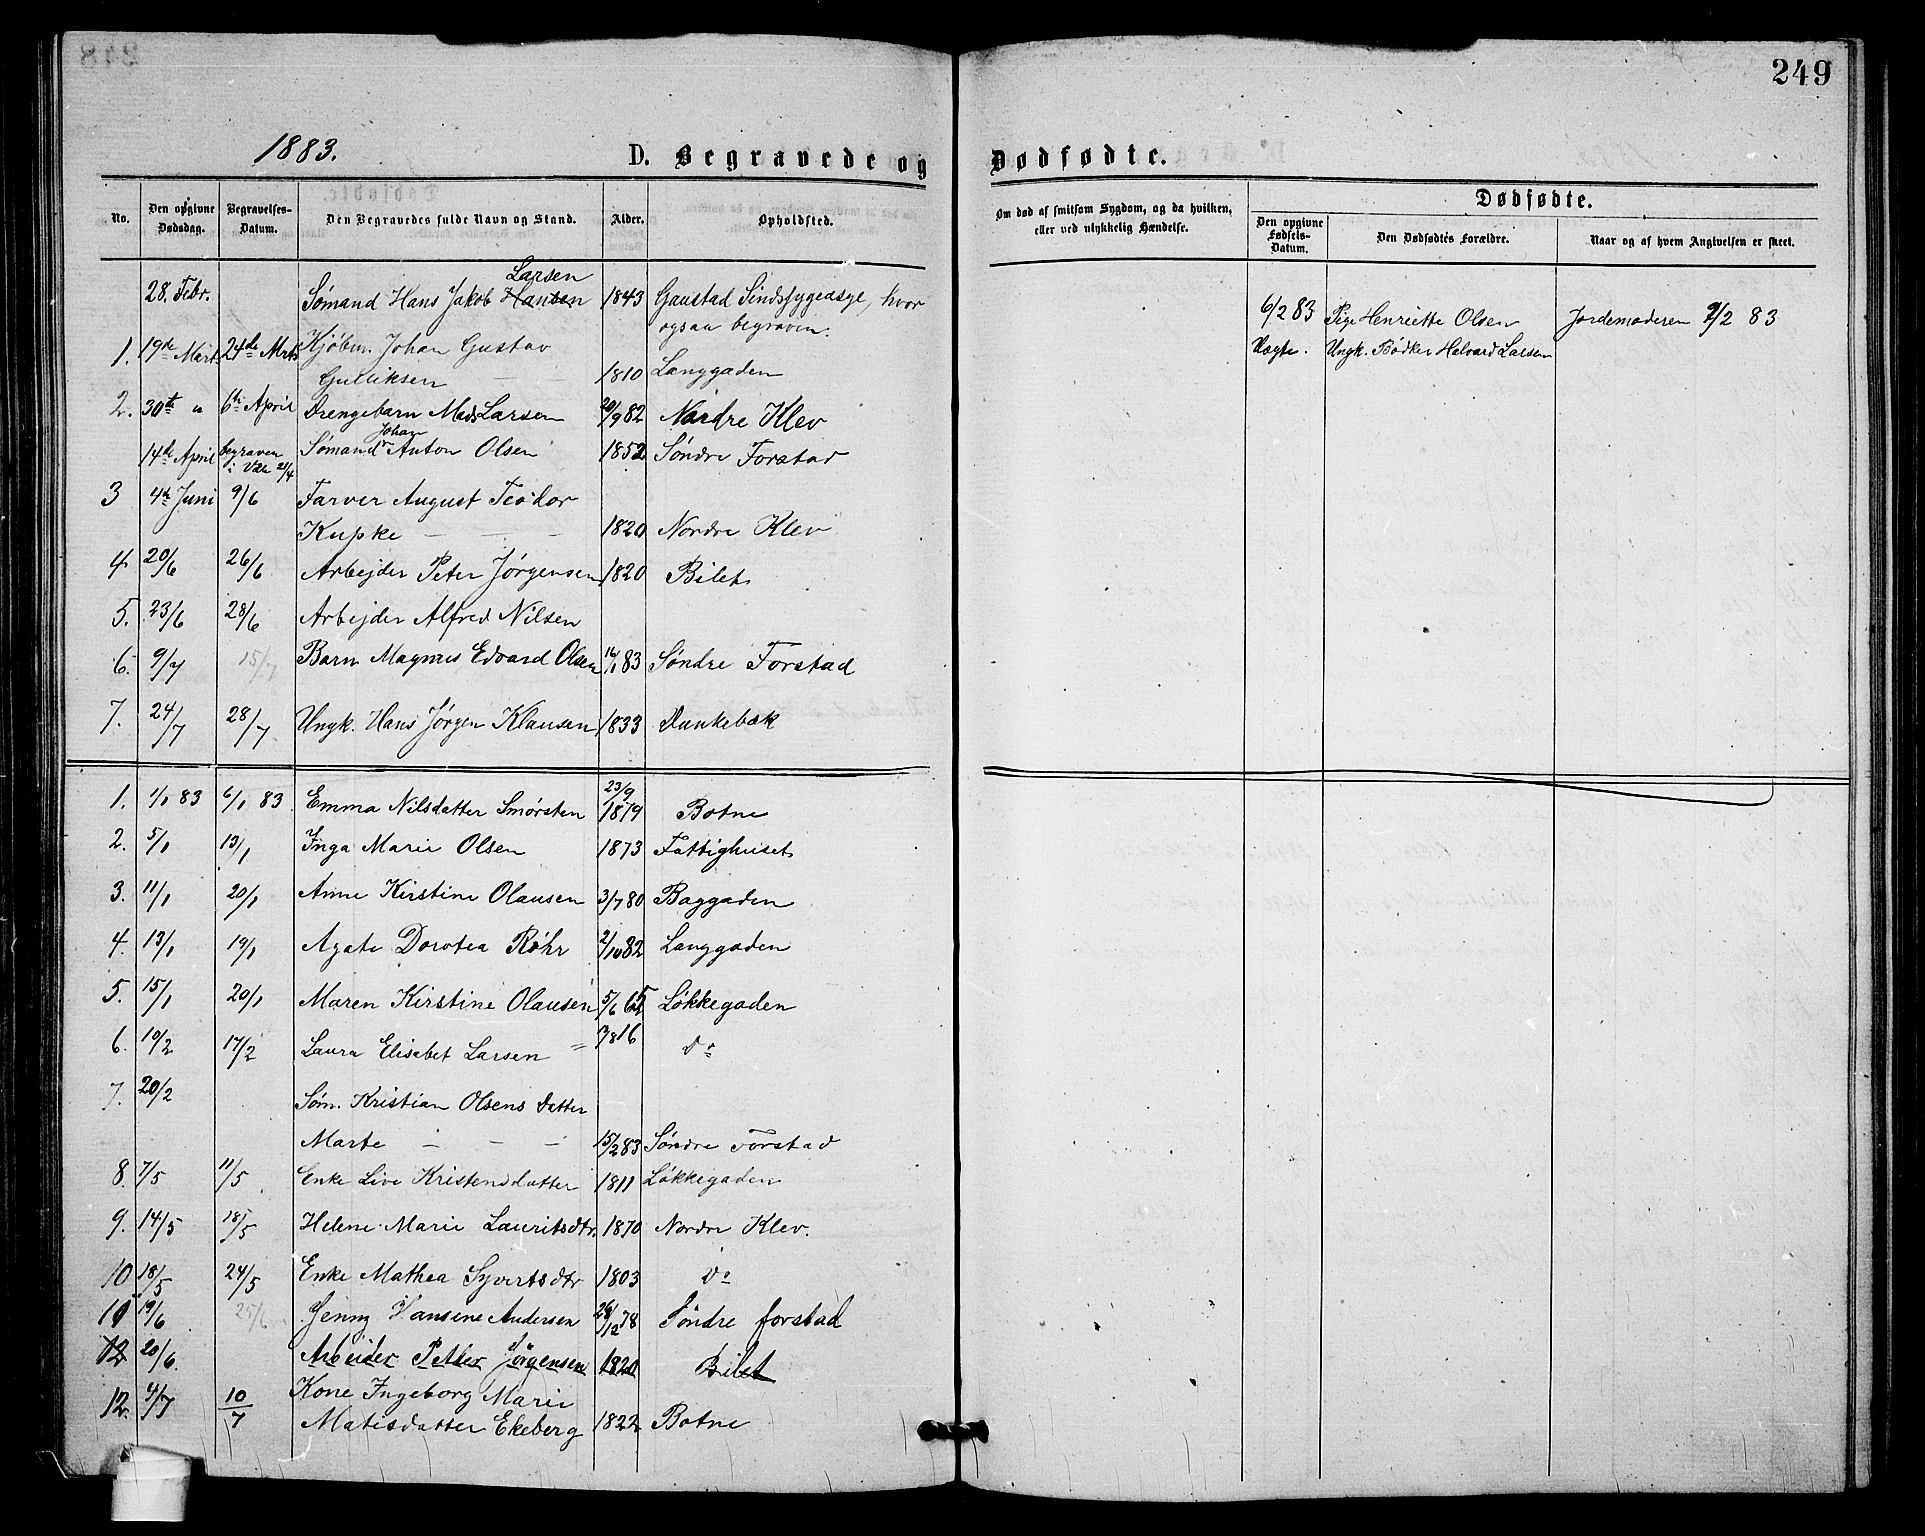 249
1883.
D. Begravede og Dødfødte.
No. Den opgivne Dødsdag. Begravelses-Datum. Den Begravedes fulde Navn og Stand. Alder. Opholdsted. Om død af smitsom Sygdom, og da hvilken, eller ved ulykkelig Hændelse. Dødfødte.
Den opgivne Fødsels-Datum. Den Dødfødtes Forældre. Naar og af hvem Angivelsen er skeet.
28. Febr. Sømand Hans Jakob Hansen Larsen 1843 Gaustad Sindssygeasyl, hvor
ogsaa begraven.
6/2 83 Pige Henriette Olsen Jordemoderen 9/2 83
Ungk. Bødker Halvard Larsen
1. 19de Mart 24de Mrts Kjøbm. Johan Gustav
Gulliksen — — 1810 Langgaden
2. 30te " 6te April Drengebarn Mads Larsen 20/9 82 Nordre Klev
14de April begraven i Våle 21/4 Sømand Johan Anton Olsen 1852 Søndre Forstad
3 4de Juni 9/6 Farver August Teodor
Kupke — — — 1820 Nordre Klev
4 20/6 26/6 Arbejder Peter Jørgensen 1820 Bilet
5. 23/6 28/6 Arbejder Alfred Nilsen
6. 9/7 15/7 Barn Magnus Edvard Olsen 16/1 83 Søndre Forstad
7. 24/7 28/7 Ungk. Hans Jørgen Klausen 1833 Dunkebæk
1. 1/1 83 6/1 83 Emma Nilsdatter Smørsten 23/9 1879 Botne
2. 5/1 13/1 Inga Marie Olsen 1873 Fattighuset
3. 11/1 20/1 Anne Kirstine Olausen 3/7 80 Baggaden
4. 13/1 19/1 Agate Dorotea Røhr 2/10 82 Langgaden
5. 15/1 20/1 Maren Kirstine Olausen 5/6 65 Løkkegaden
6. 10/2 17/2 Laura Elisabet Larsen = Do
7. 20/2 Søm. Kristian Olsens Datter
Marte — — — 15/2 83 Søndre Forstad
8. 7/5 11/5 Enke Live Kristensdatter 1811 Løkkegaden
9. 14/5 18/5 Helene Marie Lauritsdtr. 1870 Nordre Klev.
10 18/5 24/5 Enke Mathea Syvertsdtr 1803 Do
11 19/6 25/6 Jenny Hansine Andersen 26/12 78 Søndre forstad
12 20/6. Arbeider Petter Jörgensen 1820 Bilet
12. 4/7 10/7 Kone Ingeborg Marie
Matisdatter Ekeberg 1822 Botne